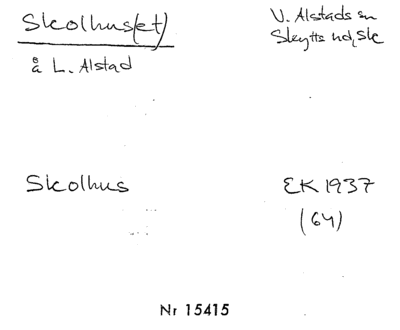 Skolhus(et)
å L. Alstad
V. Alstads sn
Skytts hd, Sk
Skolhus
EK 1937
(64)
Nr 15415